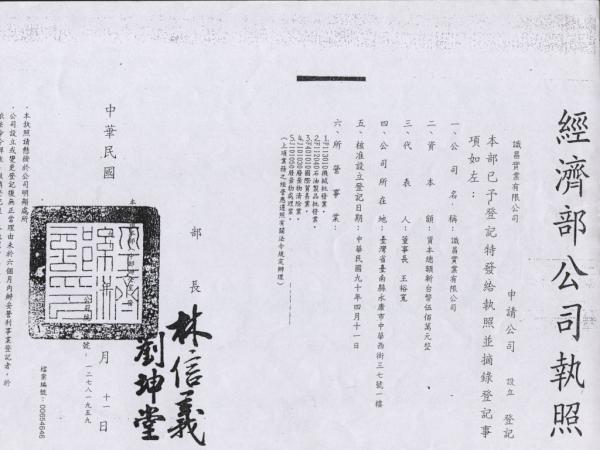 經濟部公司執照
識昌實業有限公司 申請公司 設立 登記
本部已予登記特發給執照並摘錄登記事
項如左：
一、公司名稱：識昌實業有限公司
二、資本額：資本總額新台幣伍佰萬元整
三、代表人：董事長 王裕寬
四、公司所在地：臺灣省臺南縣永康市中華西街三七號一樓
五、核准設立登記日期：中華民國九十年四月十一日
六、所營事業：
1.F113010機械批發業。
2.F112040石油製品批發業。
3.F401010國際貿易業。
4.J101030廢棄物清除業。
5.J101040廢棄物處理業。
（上項業務之經營應遵照有關法令規定辦理）
部長 林信義
劉坤堂
號：一二七八一九五九
中華民國
月 十一 日
檔案編號：00654646
．本執照請懸掛於公司明顯處所
．公司設立或變更登記後無正當理由未於六個月內辦妥營利事業登記者，於